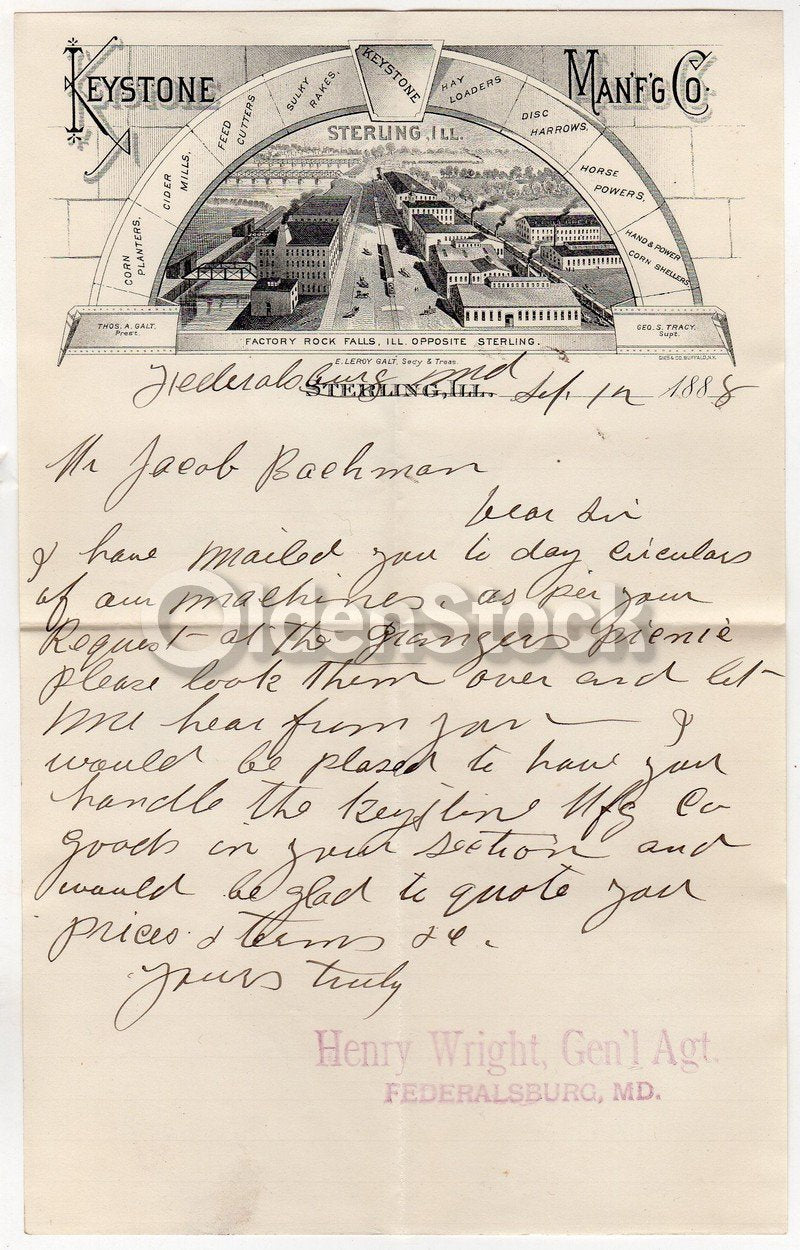 KEYSTONE MAN'F'G CO.
CORN PLANTERS,
CIDER MILLS,
FEED CUTTERS
SULKY RAKES,
KEYSTONE
HAY LOADERS
DISC HARROWS,
HORSE POWERS,
HAND & POWER CORN SHELLERS
STERLING, ILL.
THOS. A. GALT, Prest.
GEO. S. TRACY, Supt.
FACTORY ROCK FALLS, ILL. OPPOSITE STERLING.
E. LEROY GALT, Secy & Treas.
GIES & CO. BUFFALO, N.Y.
STERLING, ILL.
Federalsburg Md Sep 12 1888
Mr Jacob Bachman
Dear Sir
I have mailed you to day circulars
of our machines. as per your
Request at the Grangers picnic
please look them over and let
me hear from you — I
would be plased to have you
handle the Keystone Mfg Co
goods in your section and
would be glad to quote you
prices & terms &c.
Yours truly
Henry Wright, Gen'l Agt.
FEDERALSBURG, MD.
OldenStock